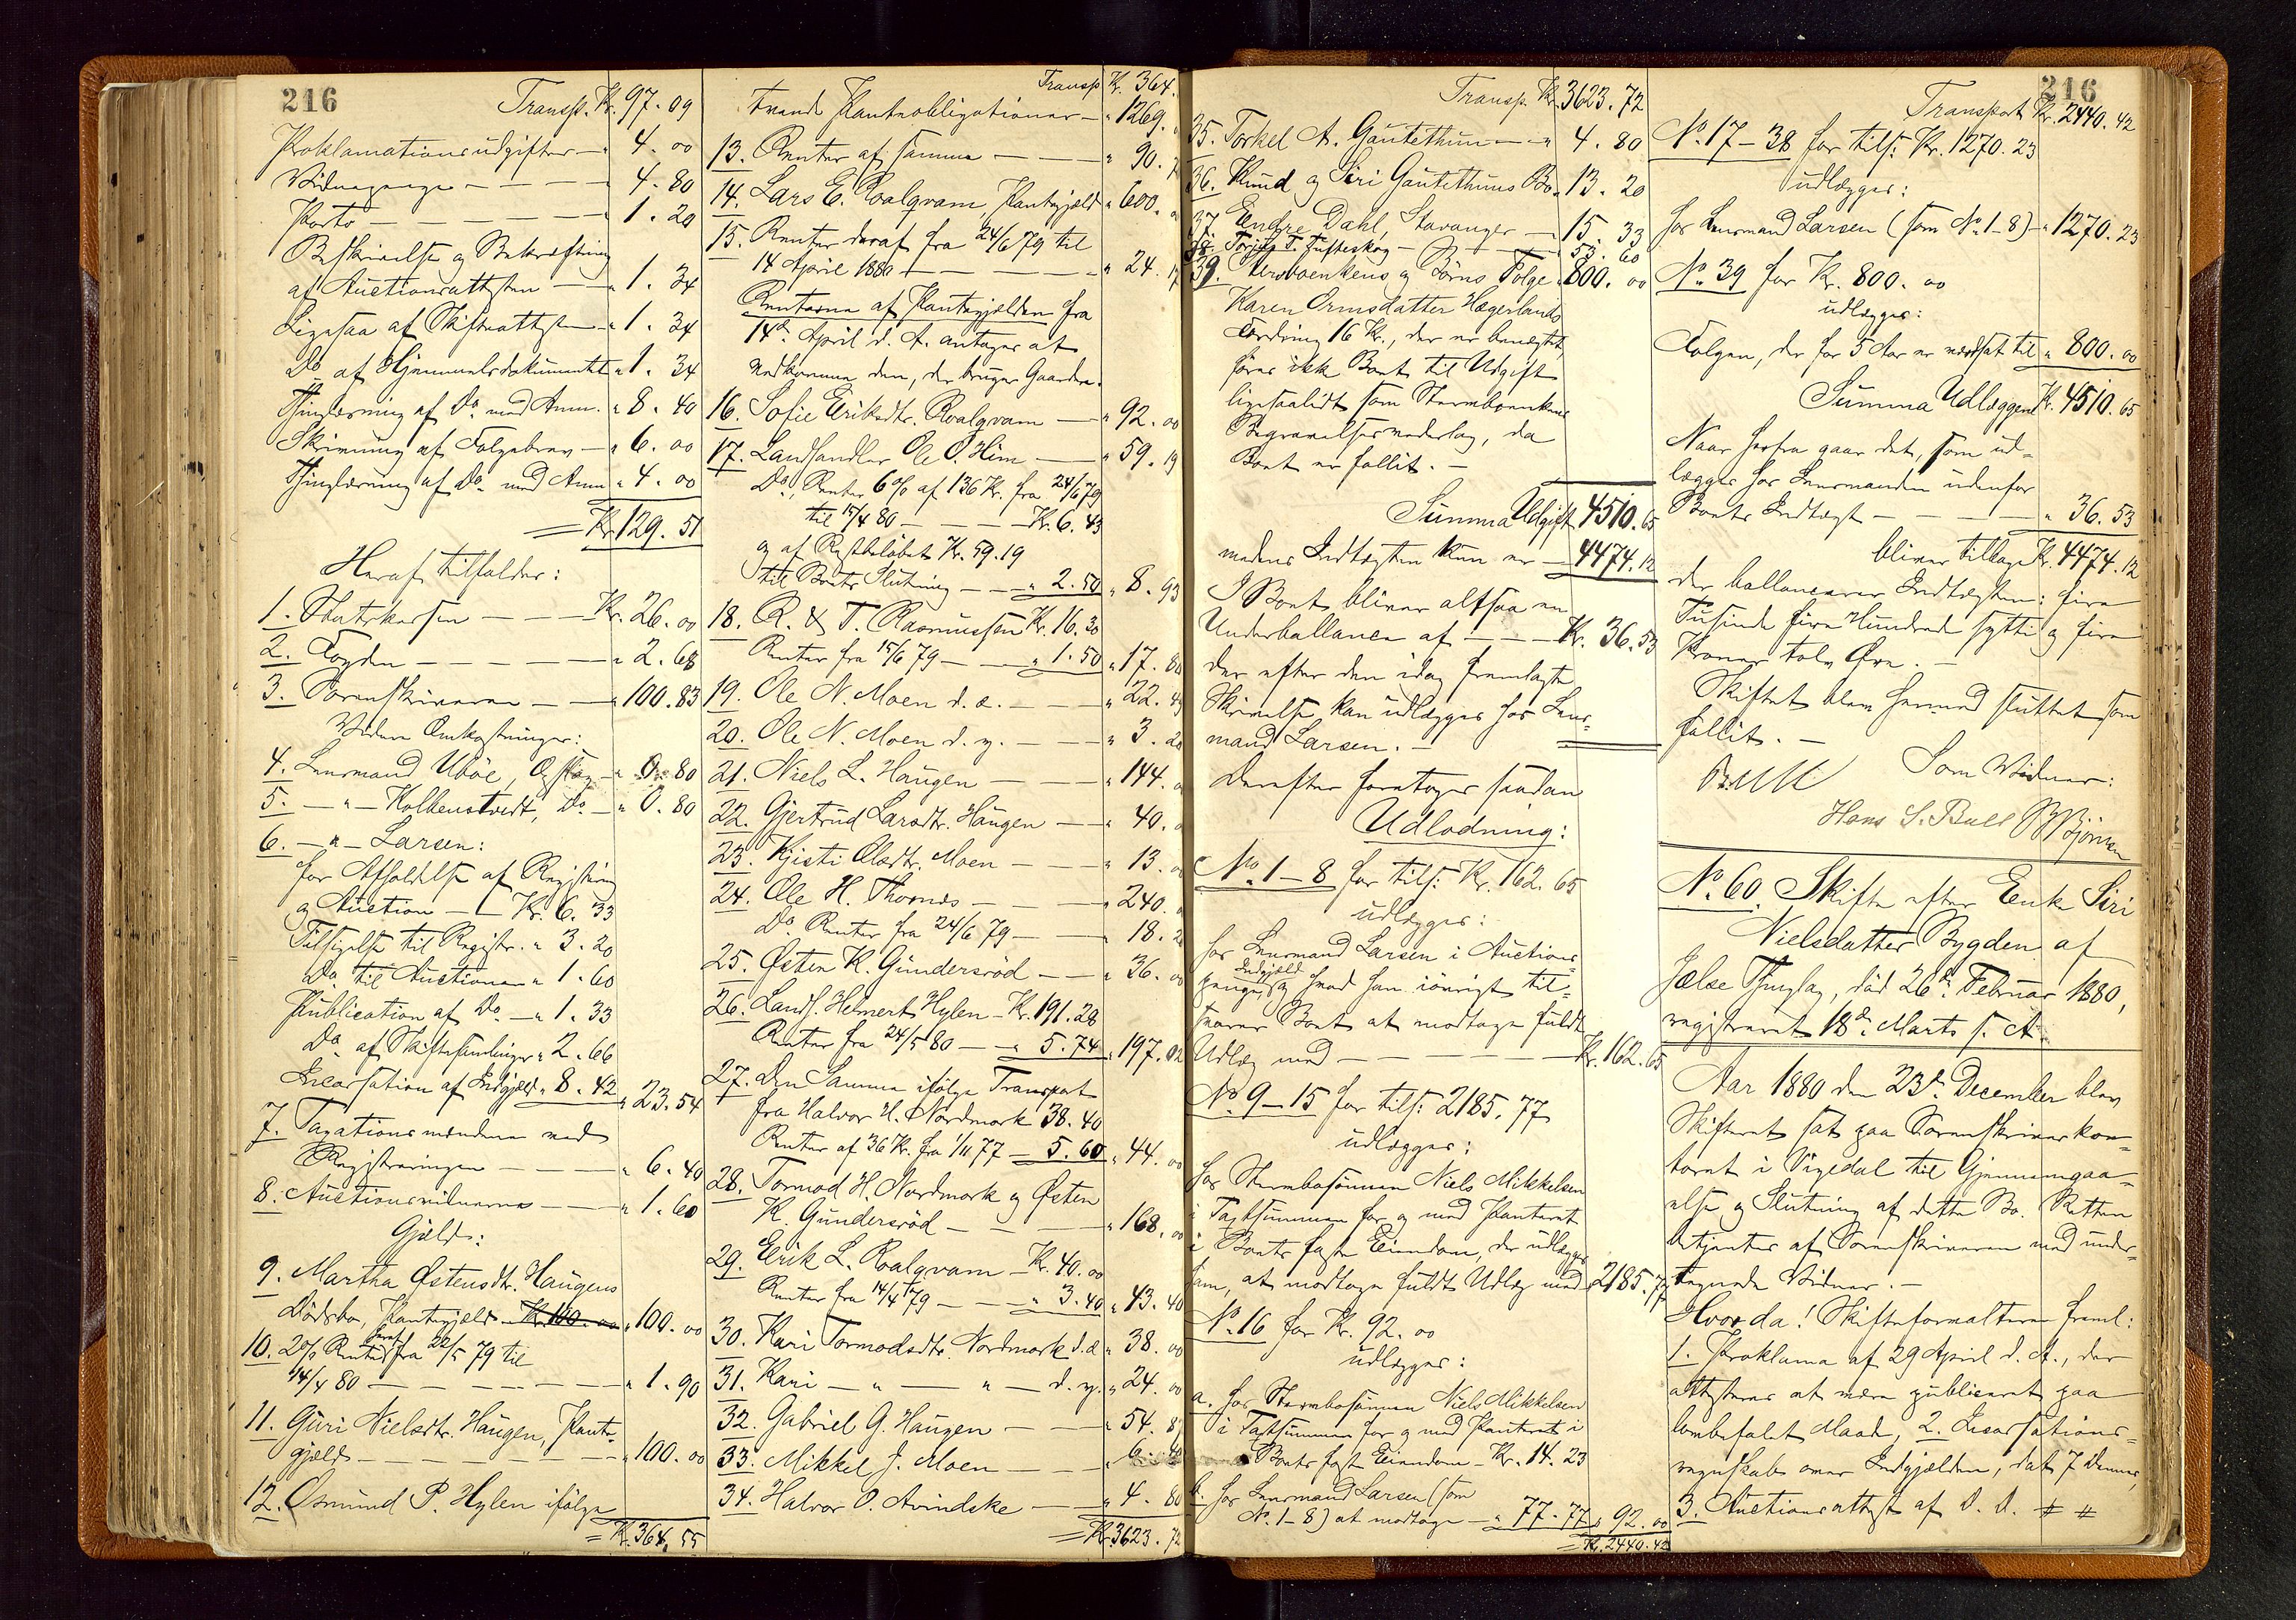 216
Transp. Kr. 97.09
Proklamationsudgifter — " 4.00
Vidnepenge — — — " 4.80
Porto — — — — " 1.20
Beskrivelse og Bekræftning
af Auctionsattesten — " 1.34
Ligesaa af Skifteattesten — " 1.34
Do af Hjemmelsdokumentet " 1.34
Thinglæsning af Do med Anm. " 8.40
Skrivning af Følgebrev — " 6.00
Thinglæsning af Do med Anm " 4.00
= Kr. 129.51
Heraf tilfalder:
1. Statskassen — — — Kr. 26.00
2. Fogden — — — — — " 2.68
3. Sorenskriveren — — " 100.83
Videre Omkostninger:
4. Lensmand Ubøe, Opslag — " 0.80
5. — " — Kolbenstvedt, Do — " 0.80
6. — " — Larsen:
for Afholdelse af Registrering
og Auction — — Kr. 6.33
Tilsigelse til Registr. " 3.20
Do til Auctionen " 1.60
Publication af Do — " 1.33
Do af Skiftesamlinger " 2.66
Incassation af Indgjæld " 8.42 " 23.54
7. Taxationsmændene ved
Registreringen — — — " 6.40
8. Auctionsvidnerne — — " 1.60
Gjæld:
9. Martha Østensdtr. Haugens
Dødsbo, Pantegjæld Kr. 100.00 " 100.00
10. 2% Renter deraf fra 22/5 79 til
14/4 80 — — — — — " 1.90
11. Guri Nielsdtr. Haugen, Pante-
gjæld — — — — — " 100.00
12. Osmund P. Hylen ifølge
= Kr. 364.55
Transp Kr. 364.
tvende Panteobligationer — " 1269.
13. Renter af samme — — — " 90.
14. Lars E. Roalqvam Pantegjæld " 600.
15. Renter deraf fra 24/6 79 til
14 April 1880 — — — — " 24.
Renterne af Pantegjælden fra
14de April d. A. antages at
vedkomme den, der bruger Gaarden.
16. Sofie Eriksdtr. Roalqvam — " 92.00
17. Landhandler Ole O. Him — " 59.19
Do, Renter 6% af 136 Kr. fra 24/6 79
til 15/4 80 — — — Kr. 6.43
og af Restbeløbet Kr. 59.19
til Boets Slutning — — " 2.50 " 8.93
18. R. & T. Rasmussen Kr. 16.30
Renter fra 15/6 79 — — " 1.50 " 17.80
19. Ole N. Moen d. æ. — — " 22.
20. Ole N. Moen d. y. — — " 3.20
21. Niels L. Haugen — — " 144.
22. Gjertrud Larsdtr. Haugen — " 40.
23. Kjisti Olsdtr. Moen — — " 13.
24. Ole H. Thornæs — — — " 240.
Do Renter fra 24/6 79 — — " 18.
25. Østen K. Gundersrød — — " 36.00
26. Landh. Helmert Hylen — Kr. 191.28
Renter fra 24/5 80 — — " 5.74 " 197.02
27. Den Samme ifølge Transport
fra Halvor H. Nordmork 38.40
Renter af 36 Kr. fra 1/11 77 — 5.60 " 44.00
28. Tormod H. Nordmork og Østen
K. Gundersrød — — — " 168.00
29. Erik L. Roalqvam — Kr. 40.00
Renter fra 14/4 79 — — " 3.40 " 43.40
30. Kari Tormodsdtr. Nordmork d. æ " 38.00
31. Kari — " — " — d. y. " 24.00
32. Gabriel G. Haugen — — " 54.8
33. Mikkel J. Moen — — — "
34. Halvor O. Avindske — — " 4.80
= Kr. 3623.72
Transp. Kr. 3623.72
35. Torkel A. Gautethun — — " 4.80
36. Knud og Siri Gautethuns Bo " 13.20
37. Endre Dahl, Stavanger — 15.33
38. Tufteskog — 53.60
39. Stervboenkens og Børns Følge " 800.00
Karen Ormsdatter Hegerlands
Fordring 16 Kr., der er benægtet,
føres ikke Boet til Udgift
ligesaalidt som Stervboenkens
Begravelsesvederlag, da
Boet er fallit. —
Summa Udgift 4510.65
medens Indtægten kun er — 4474.12
I Boet bliver altsaa en
Underballance af — — — Kr. 36.53
der efter den idag fremlagte
Skrivelse kan udlægges hos Lens-
mand Larsen. —
Derefter foretoges saadan
Udlodning:
No. 1–8 for tils: Kr. 162.65
udlægges:
hos Lensmand Larsen i Auctions-
penge, Indgjæld og hvad han iøvrigt til-
svarer Boet at modtage fuldt
Udlæg med — — — — — Kr. 162.65
No 9–15 for tils: 2185.77
udlægges:
hos Stervbosønnen Niels Mikkelsen
i Taxtsummen for og med Panteret
i Boets faste Eiendom, der udlægges
ham, at modtage fuldt Udlæg med " 2185.77
No. 16 for Kr. 92.00
udlægges:
a. hos Stervbosønnen Niels Mikkelsen
i Taxtsummen for og med Panteret i
Boets faste Eiendom — Kr. 14.23
b. hos Lensmand Larsen (som
No. 1–8) at modtage — " 77.77 " 92.00
= Kr. 2440.42
216
Transport Kr. 2440.42
No. 17–38 for tils: Kr. 1270.23
udlægges:
hos Lensmand Larsen (som No. 1–8) — " 1270.23
No. 39 for Kr. 800.00
udlægges:
Følgen, der for 5 Aar er værdsat til " 800.00
Summa Udlæggene Kr. 4510.65
Naar herfra gaar det, som ud-
lægges hos Lensmanden udenfor
Boets Indtægt — — — — " 36.53
bliver tilbage Kr. 4474.12
der ballancerer Indtægten: fire
Tusinde fire Hundrede sytti og fire
Kroner tolv Øre. —
Skiftet blev hermed sluttet som
fallit. —
Som Vidner:
Hans S. Bull Bjørnsen
No. 60. Skifte efter Enke Siri
Nielsdatter Bygden af
Jælse Thinglag, død 26de Februar 1880,
registreret 18de Marts s. A.
Aar 1880 den 23de December blev
Skifteret sat paa Sorenskriverkon-
toret i Vigedal til Gjennemgaa-
else og Slutning af dette Bo. Retten
betjentes af Sorenskriveren med under-
tegnede Vidner. —
Hvorda! Skifteforvalteren freml:
1. Proklama af 29 April d. A., der
attesteres at være publiceret paa
lovbefalet Maade, 2. Incassations-
regnskab over Indgjælden, dat. 7 dennes,
3. Auctionsattest af D. D. # #